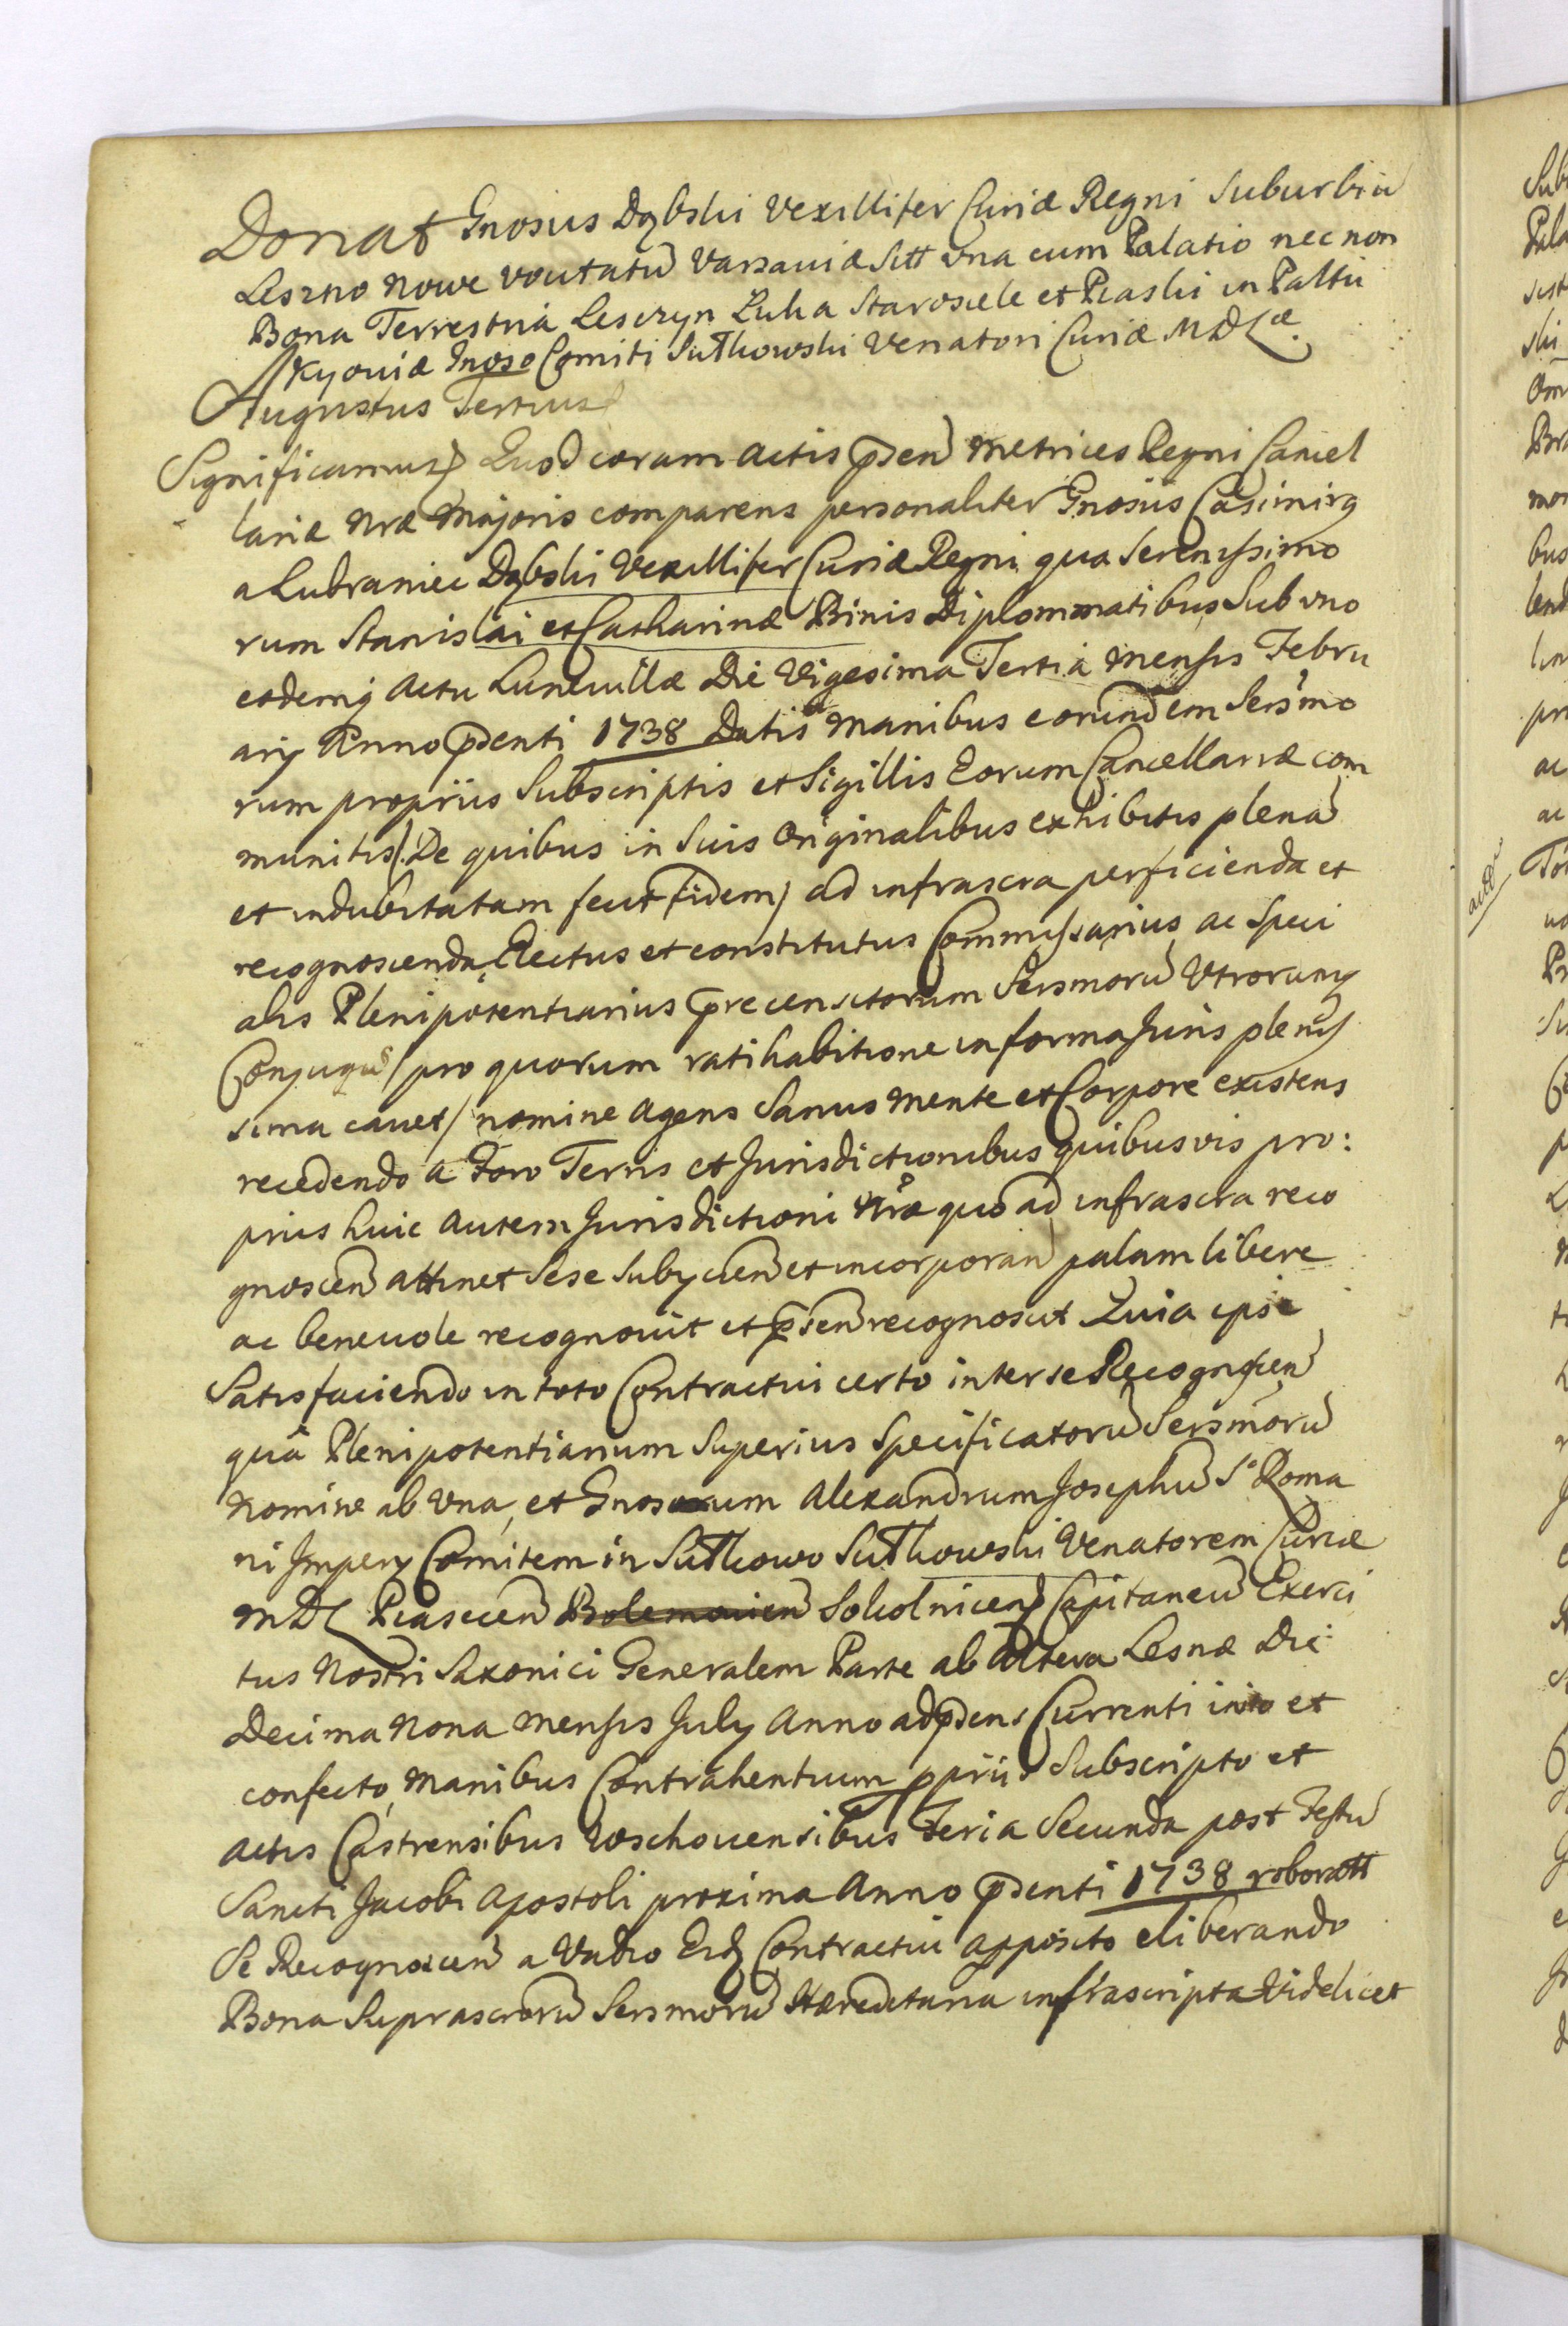 Donat Gnosus Dąbski Vexillifer Curiæ Regni Suburbiũ
Leszno Nowe vocitatũ Varsaviæ Sitt una cum Palatio nec non
Bona Terrestria Lesczyn Łuka Starosiele et Piaski in Paltũ
Kyoviæ Gnoso Comiti Sułkowski Venatori Curiæ M D L æ.
Augustus Tertius
Significamus Quod coram Actis p̄sen Metrices Regni Cancel
lariæ Nræ Majoris comparens personaliter Gnosus Casimirg
a Lubraniec Dąbski Vexillifer Curiæ Regni qua Serenissimo
rum Stanislai et Catharinæ Binis Diplommatibus Sub uno
eodemq Actu Lunevillæ Die Vigesima Tertia Mensis Febru
arij Anno p̄senti 1738 Datis Manibus eorundem Sersmo
rum propriis Subscriptis et Sigillis Eorum Cancellariæ com
munitis (De quibus in Suis Originalibus exhibitis plenã
et indubitatam fecit fidem) ad infrascra perficienda et
recognoscenda Electus et constitutus Commissarius ac Speci
alis Plenipotentiarius precensitorum Sersmorũ Utrorumq
Conjugũ (pro quorum ratihabitione in forma Juris plenis
sima cavet) nomine Agens Sanus Mente et Corpore existens
recedendo a Foro Terris et Jurisdictionibus quibusvis pro:
priis huic autem Jurisdictioni Nræ quo ad infrascra reco
gnoscen attinet Sese Subijcien et incorporan palam libere
ac benevole recognovit et p̄sen recognoscit Quia ipse
Satisfaciendo in toto Contractui certo inter se Recognoscen
quã Plenipotentiarium Superius Specificatorũ Sersmorũ
Nomine ab Una, et Gnosum Alexandrum Josephũ S. Roma
ni Imperij Comitem in Sułkowo Sułkowski Venatorem Curiæ
M D L Piasecen Bolemovien Sokolnicen Capitaneũ Exerci
tus Nostri Saxonici Generalem Parte ab Altera Lesnæ Die
Decima Nona Mensis July Anno ad p̄sens Currenti inito et
confecto, Manibus Contrahentium ppriis Subscripto et
Actis Castrensibus Wschovensibus Feria Secunda post Festũ
Sancti Jacobi Apostoli proxima Anno p̄senti 1738 roboratt
Se Recognoscen a Vadio Eidz Contractui apposito eliberando
Bona Suprascrorũ Sersmorũ Hæreditaria infrascripta Videlicet